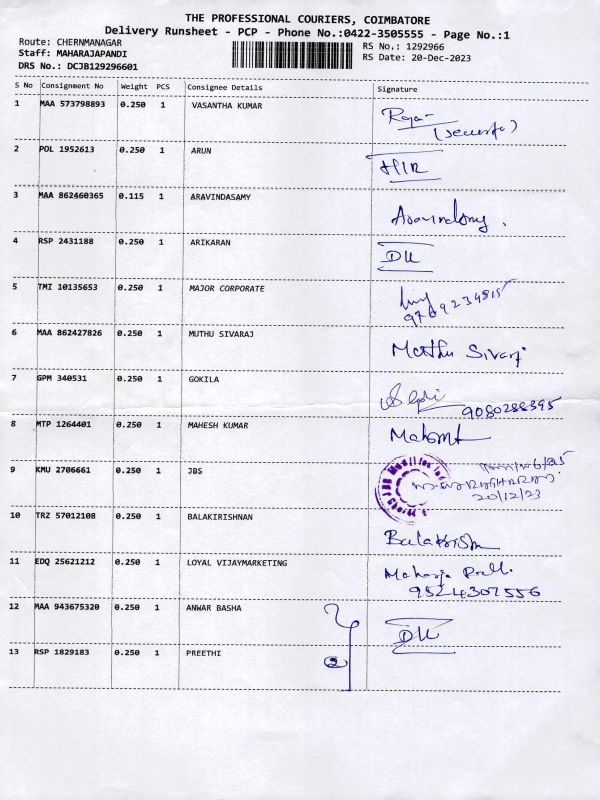 THE PROFESSIONAL COURIERS, COIMBATORE
Delivery Runsheet - PCP - Phone No.:0422-3505555 - Page No.:1
Route: CHERNMANAGAR
Staff: MAHARAJAPANDI
DRS No.: DCJB129296601
RS No.: 1292966
RS Date: 20-Dec-2023
S No Consignment No Weight PCS Consignee Details Signature
1 MAA 573798893 0.250 1 VASANTHA KUMAR
2 POL 1952613 0.250 1 ARUN
3 MAA 862460365 0.115 1 ARAVINDASAMY
4 RSP 2431188 0.250 1 ARIKARAN
5 TMI 10135653 0.250 1 MAJOR CORPORATE
9789234815
6 MAA 862427826 0.250 1 MUTHU SIVARAJ
Muthu Sivaraj
7 GPM 340531 0.250 1 GOKILA
9080288395
8 MTP 1264401 0.250 1 MAHESH KUMAR
9 KMU 2706661 0.250 1 JBS
20/12/23
10 TRZ 57012108 0.250 1 BALAKIRISHNAN
11 EDQ 25621212 0.250 1 LOYAL VIJAYMARKETING
9524307556
12 MAA 943675320 0.250 1 ANWAR BASHA
13 RSP 1829183 0.250 1 PREETHI
2